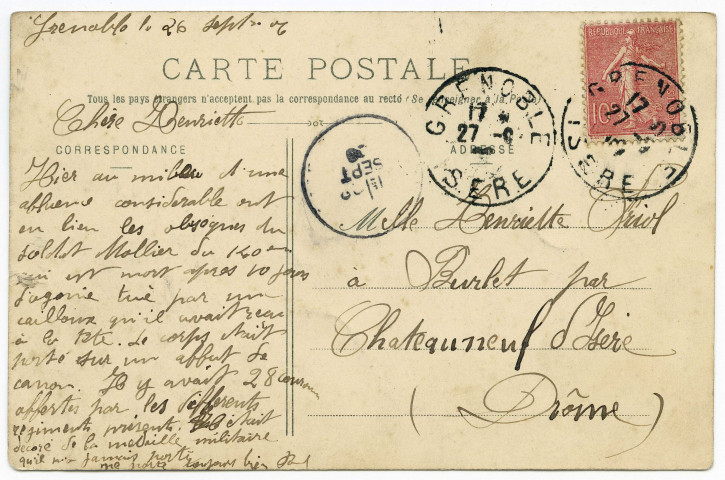 Grenoble le 26 sept 06
CARTE POSTALE
Tous les pays étrangers n'acceptent pas la correspondance au recto (Se renseigner à la Poste)
Chère Henriette
CORRESPONDANCE
ADRESSE
Hier au milieu d'une
affluence considérable ont
eu lieu les obsèques du
soldat Mollier du 140 eme
qui est mort après 10 jours
d'agonie tué par un
cailloux qu'il avait reçu
à la tête. Le corps était
porté sur un affut de
canon. Il y avait 28 couronnes
offertes par les différents
régiments présent. Il était
décoré de la médaille militaire
qu'il n'a jamais porté
me porte toujours bien
Melle Henriette Oriol
à Burlet par
Chateauneuf d'Isère
(Drôme)
GRENOBLE
17
27 -9
ISERE
SEPT
REPUBLIQUE FRANÇAISE
10
GRENOBLE
17
27
ISERE